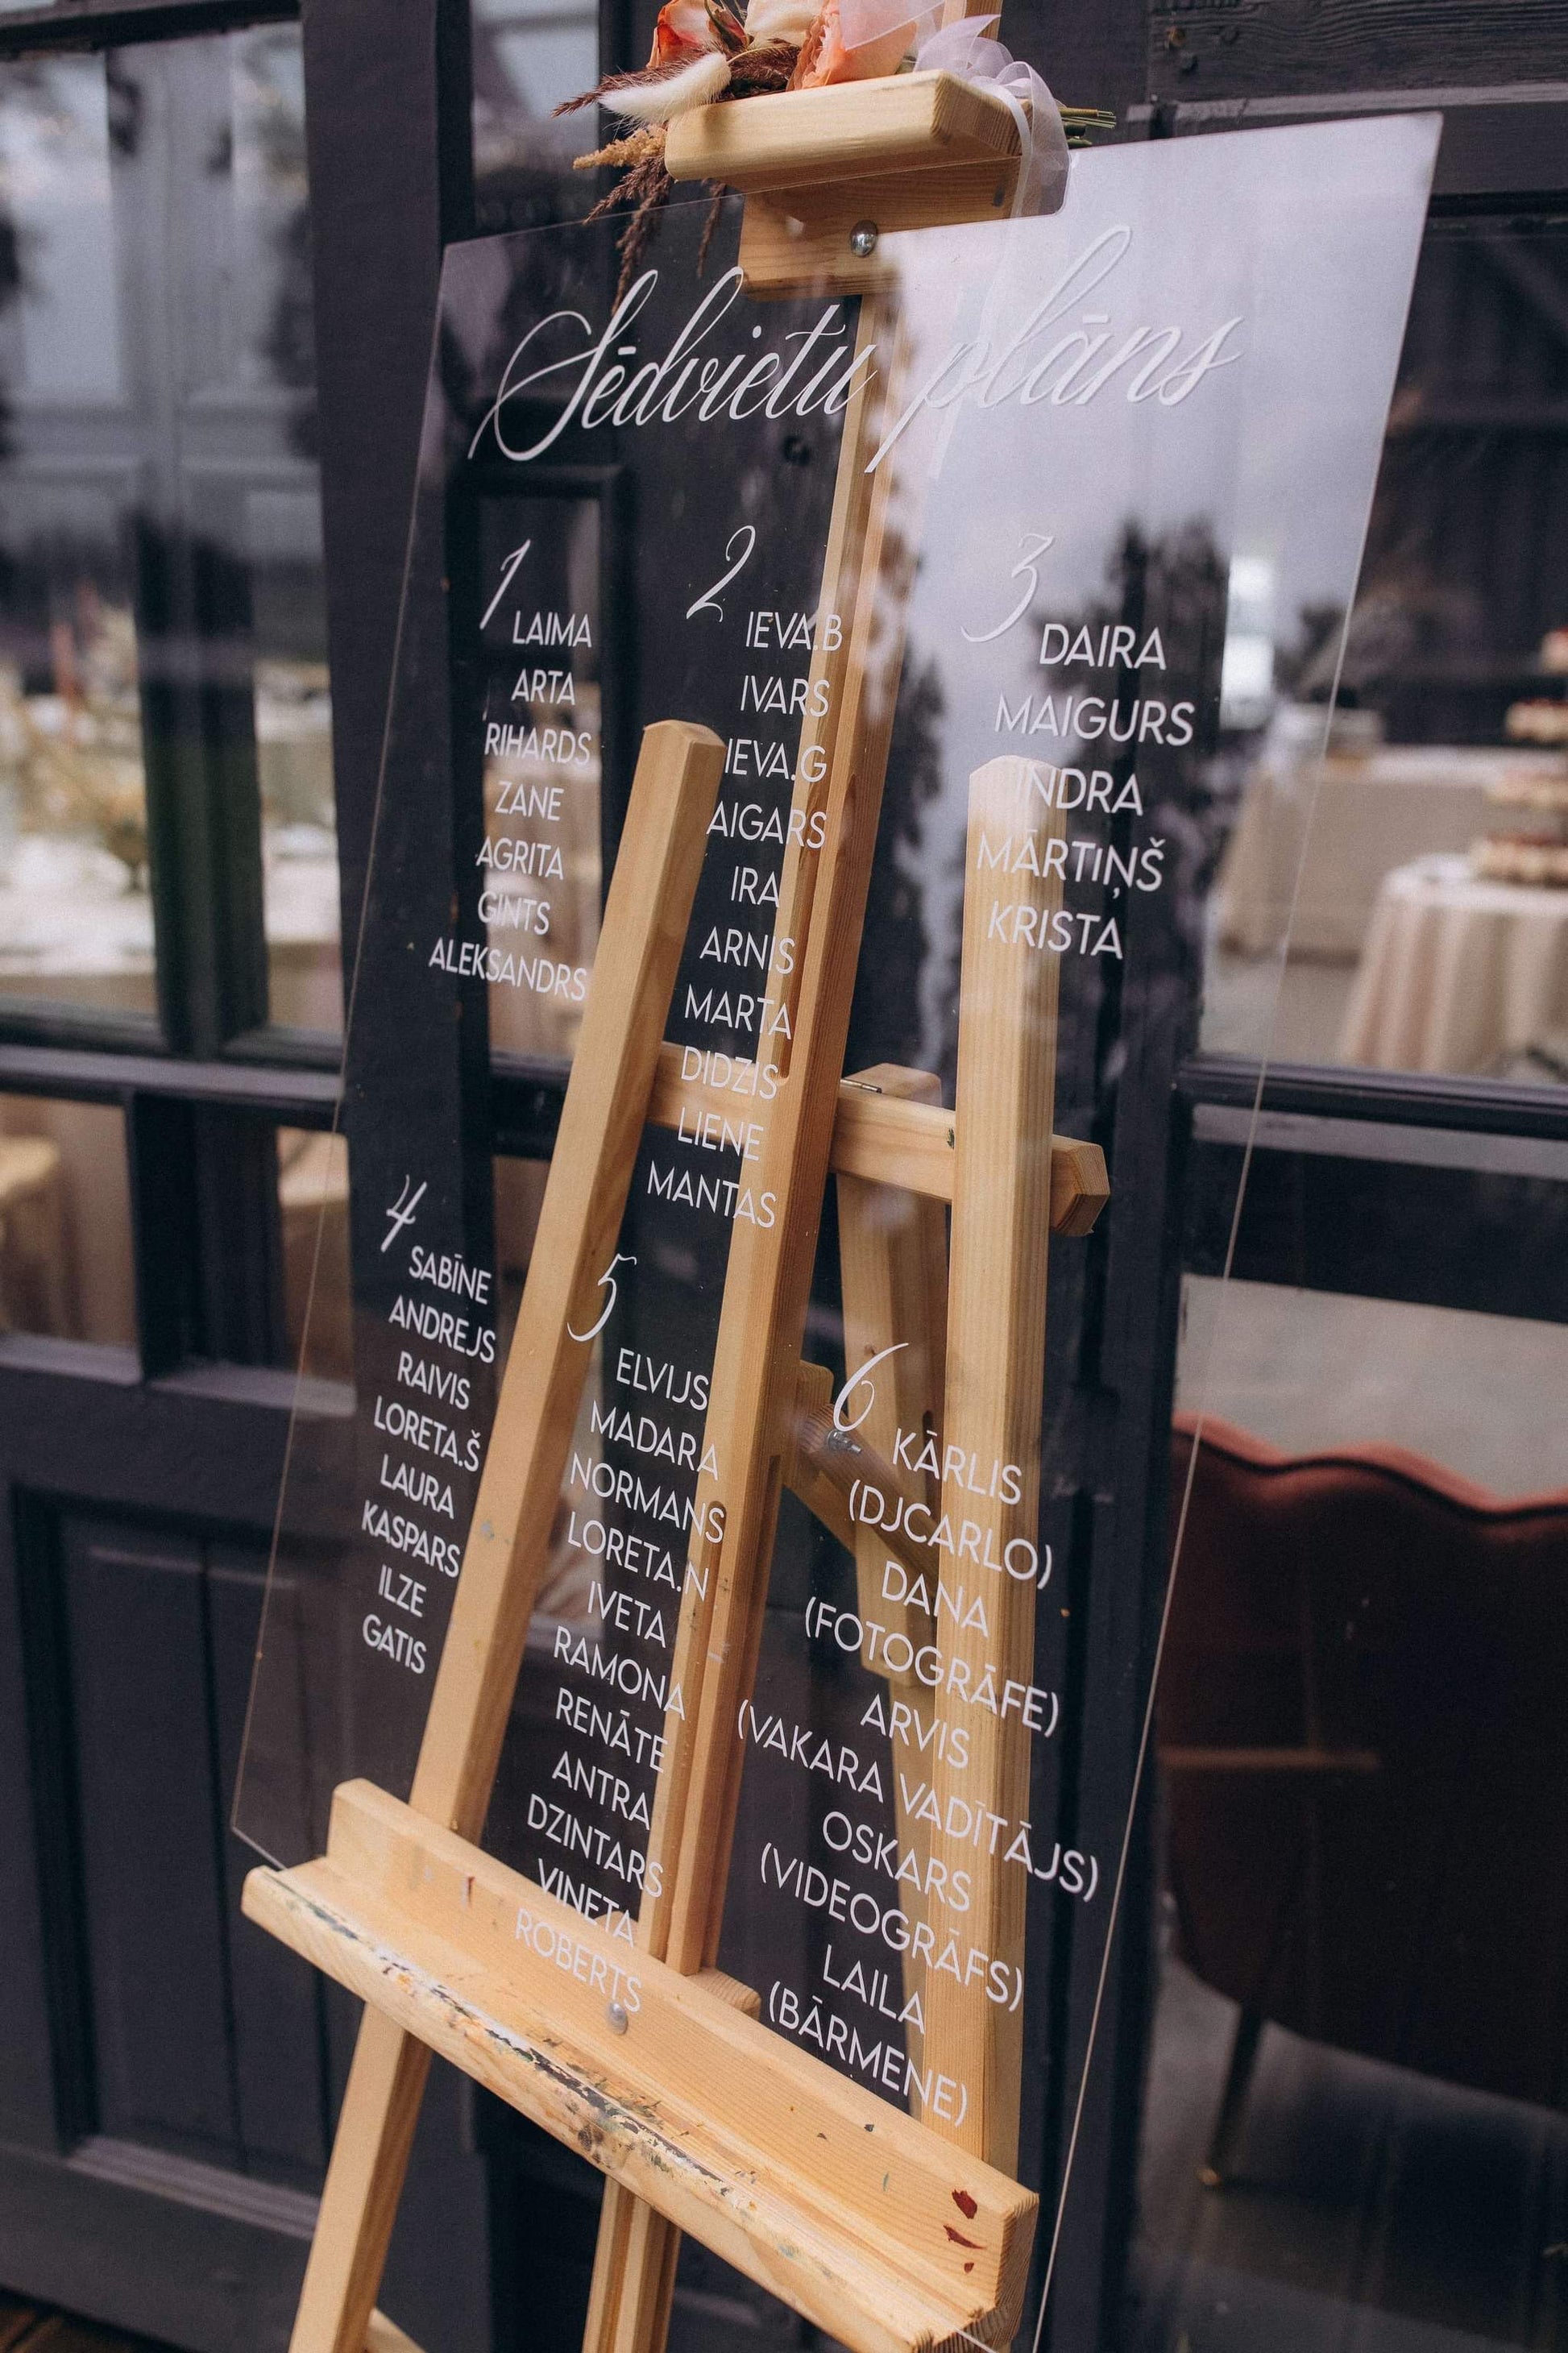 Sēdvietu plāns
1
LAIMA
ARTA
RIHARDS
ZANE
AGRITA
GINTS
ALEKSANDRS
2
IEVA.B
IVARS
IEVA.G
AIGARS
IRA
ARNIS
MARTA
DIDZIS
LIENE
MANTAS
3
DAIRA
MAIGURS
INDRA
MĀRTIŅŠ
KRISTA
4
SABĪNE
ANDREJS
RAIVIS
LORETA.Š
LAURA
KASPARS
ILZE
GATIS
5
ELVIJS
MADARA
NORMANS
LORETA.N
IVETA
RAMONA
RENĀTE
ANTRA
DZINTARS
VINETA
ROBERTS
6
KĀRLIS
(DJCARLO)
DANA
(FOTOGRĀFE)
ARVIS
(VAKARA VADĪTĀJS)
OSKARS
(VIDEOGRĀFS)
LAILA
(BĀRMENE)